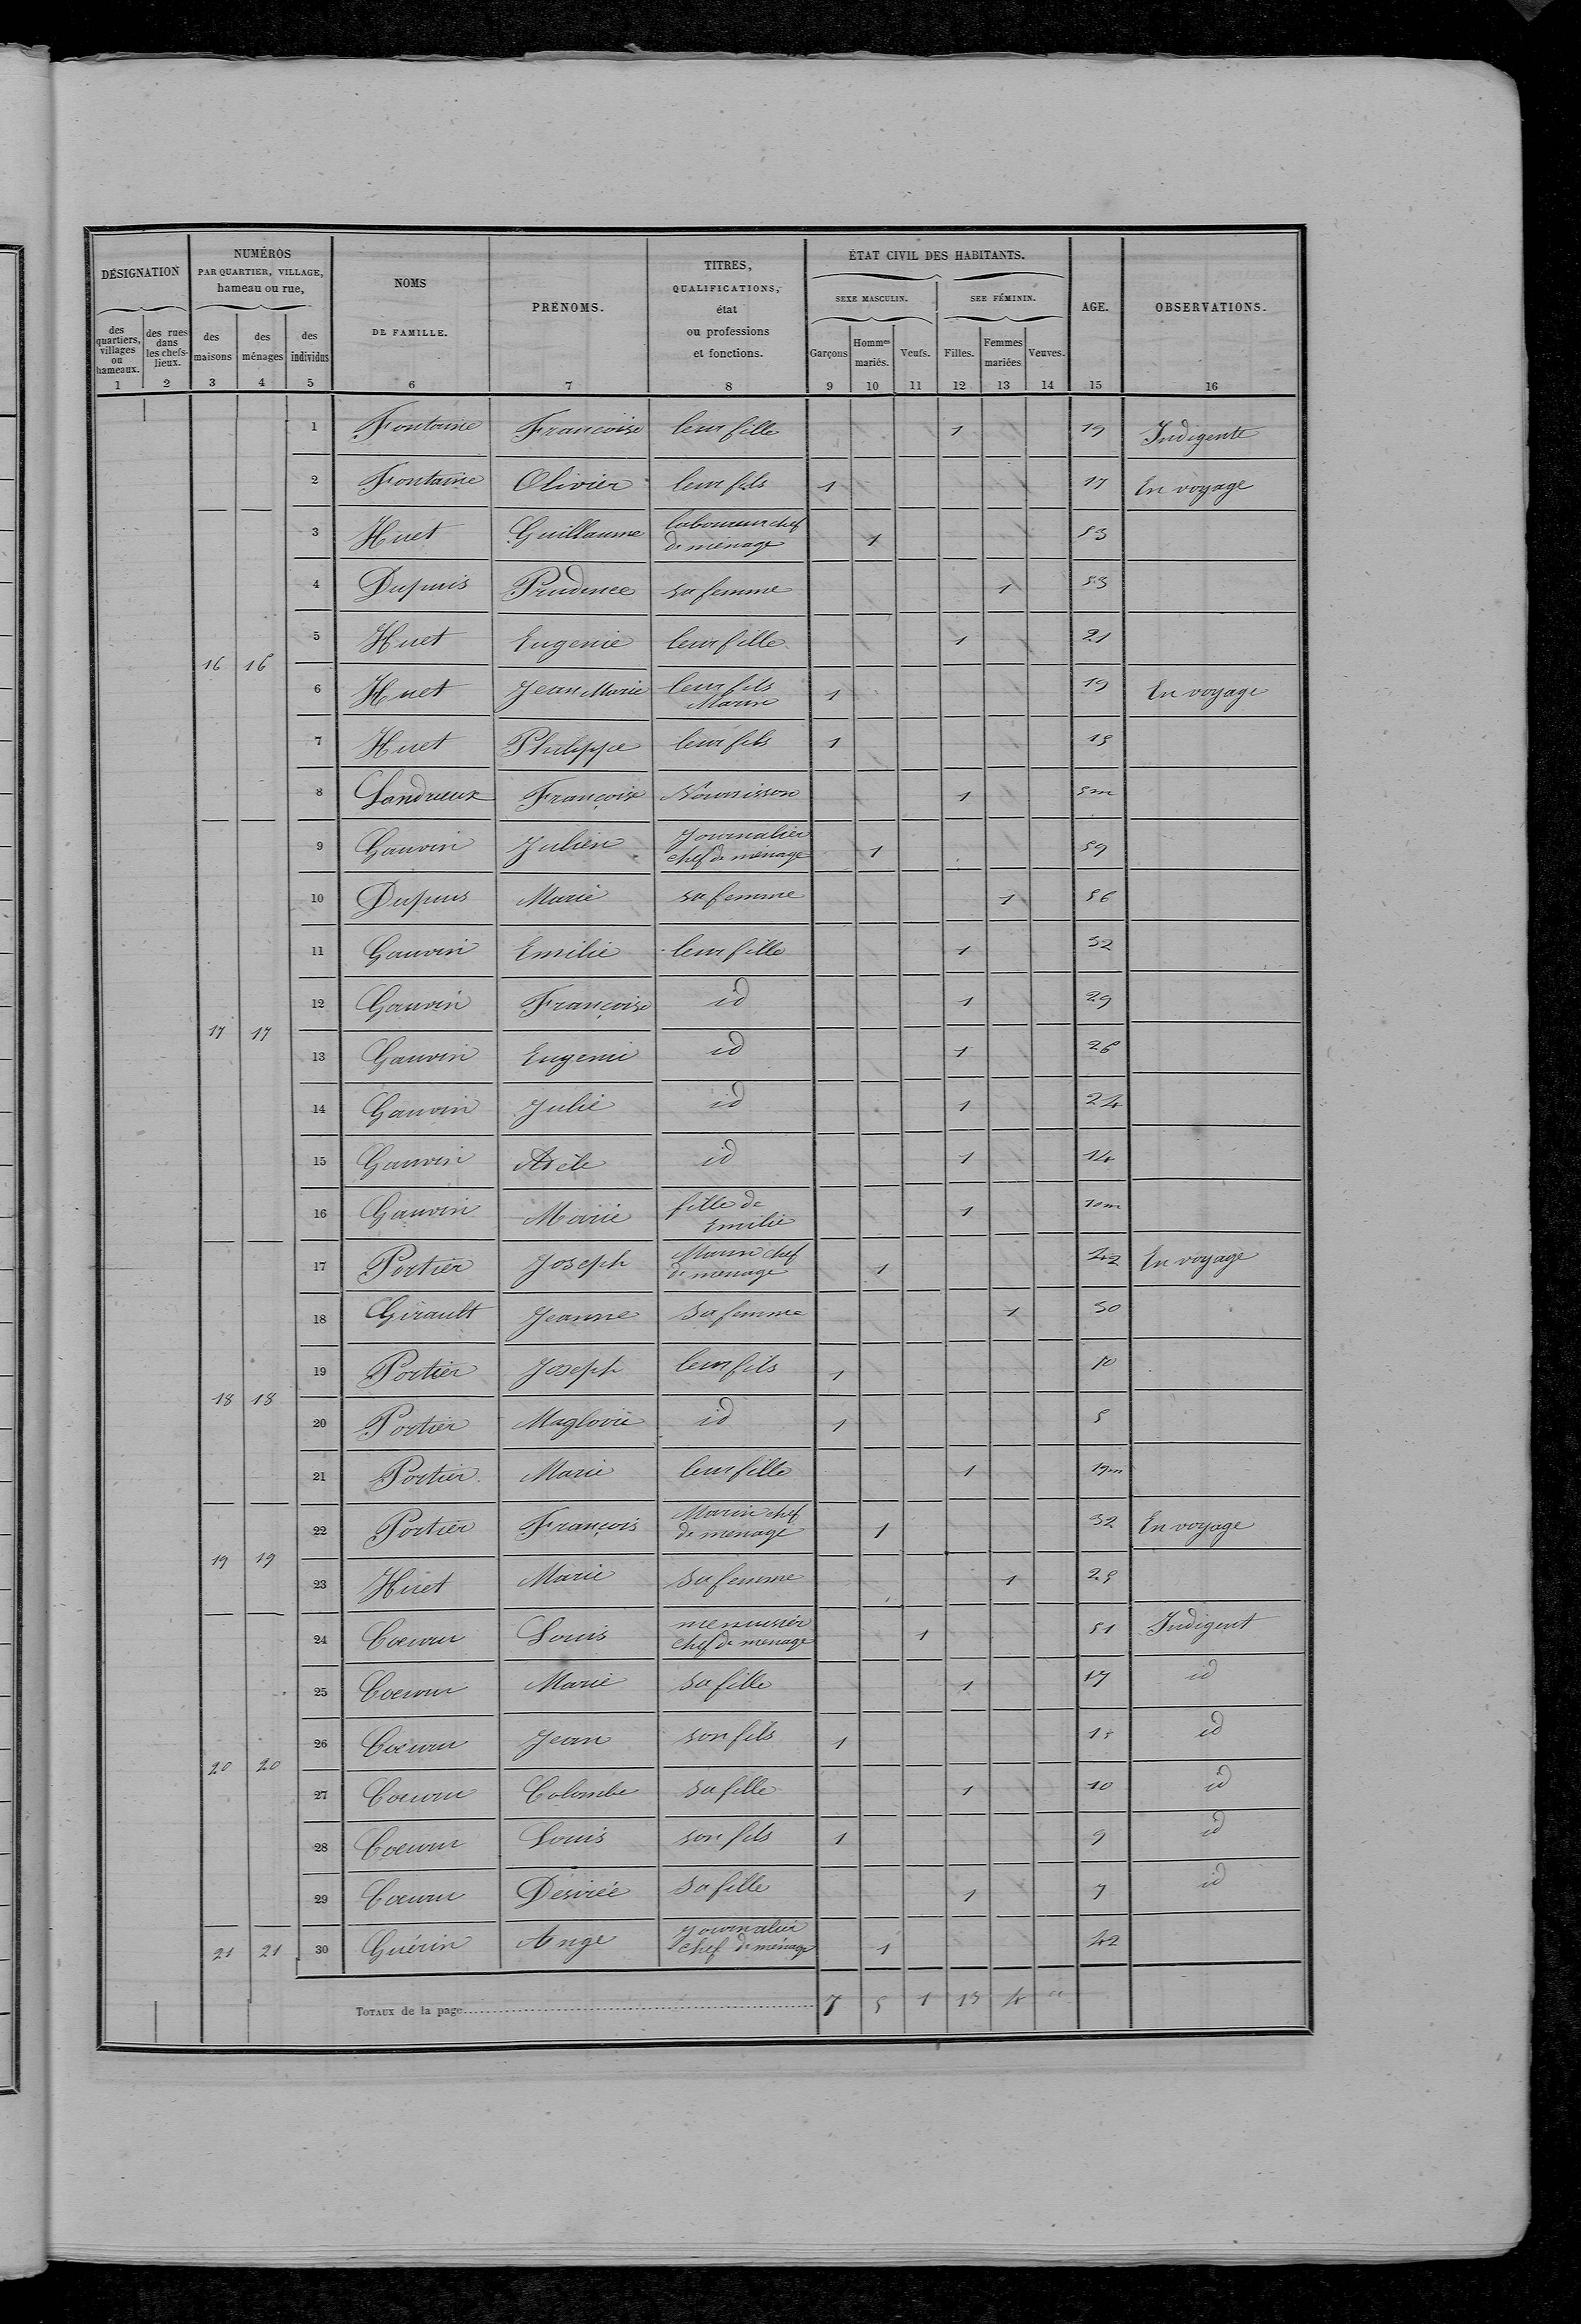 DÉSIGNATION
des quartiers, villages ou hameaux.
des rues dans les chefs-lieux.
NUMÉROS
PAR QUARTIER, VILLAGE,
hameau ou rue,
des maisons
des ménages
des individus
NOMS
DE FAMILLE.
PRÉNOMS.
TITRES,
QUALIFICATIONS,
état
ou professions
et fonctions.
ÉTAT CIVIL DES HABITANTS.
SEXE MASCULIN.
SEE FÉMININ.
Garçons
Hommes mariés.
Veufs.
Filles.
Femmes mariées
Veuves.
AGE.
OBSERVATIONS.
1 2 3 4 5 6 7 8 9 10 11 12 13 14 15 16
1 Fontaine Francoise leur fille 1 19 Indigente
2 Fontaine Olivier leur fils 1 17 En voyage
3 Huet Guillaume laboureur chef
de ménage 1 53
4 Dupuis Prudence sa femme 1 53
5 Huet Eugenie leur fille 1 21
16 16
6 Huet Jean Marie leur fils
Marin 1 19 En voyage
7 Huet Philippe leur fils 1 15
8 Françoise Nourrisson 1 5m
9 Gauvin Julien Journalier
chef de ménage 1 59
10 Dupuis Marie sa femme 1 56
11 Gauvin Emilie leur fille 1 32
12 Gauvin Françoise id 1 29
17 17
13 Gauvin Eugenie id 1 26
14 Gauvin Julie id 1 24
15 Gauvin Adèle id 1 14
16 Gauvin Marie fille de
Emilie 1 10m
17 Portier Joseph Marin chef
de menage 1 42 En voyage
18 Girault Jeanne sa femme 1 30
19 Portier Joseph leur fils 1 10
18 18
20 Portier Magloire id 1 5
21 Portier Marie leur fille 1 19m
22 Portier François Marin chef
de menage 1 32 En voyage
19 19
23 Huet Marie sa femme 1 25
24 Louis menuisier
chef de menage 1 51 Indigent
25 Marie sa fille 1 17 id
26 Jean son fils 1 15 id
20 20
27 Colombe sa fille 1 10 id
28 Louis son fils 1 9 id
29 Desirée sa fille 1 7 id
21 21 30 Guérin Ange journalier
chef de ménage 1 42
TOTAUX de la page 7 5 1 13 4 "